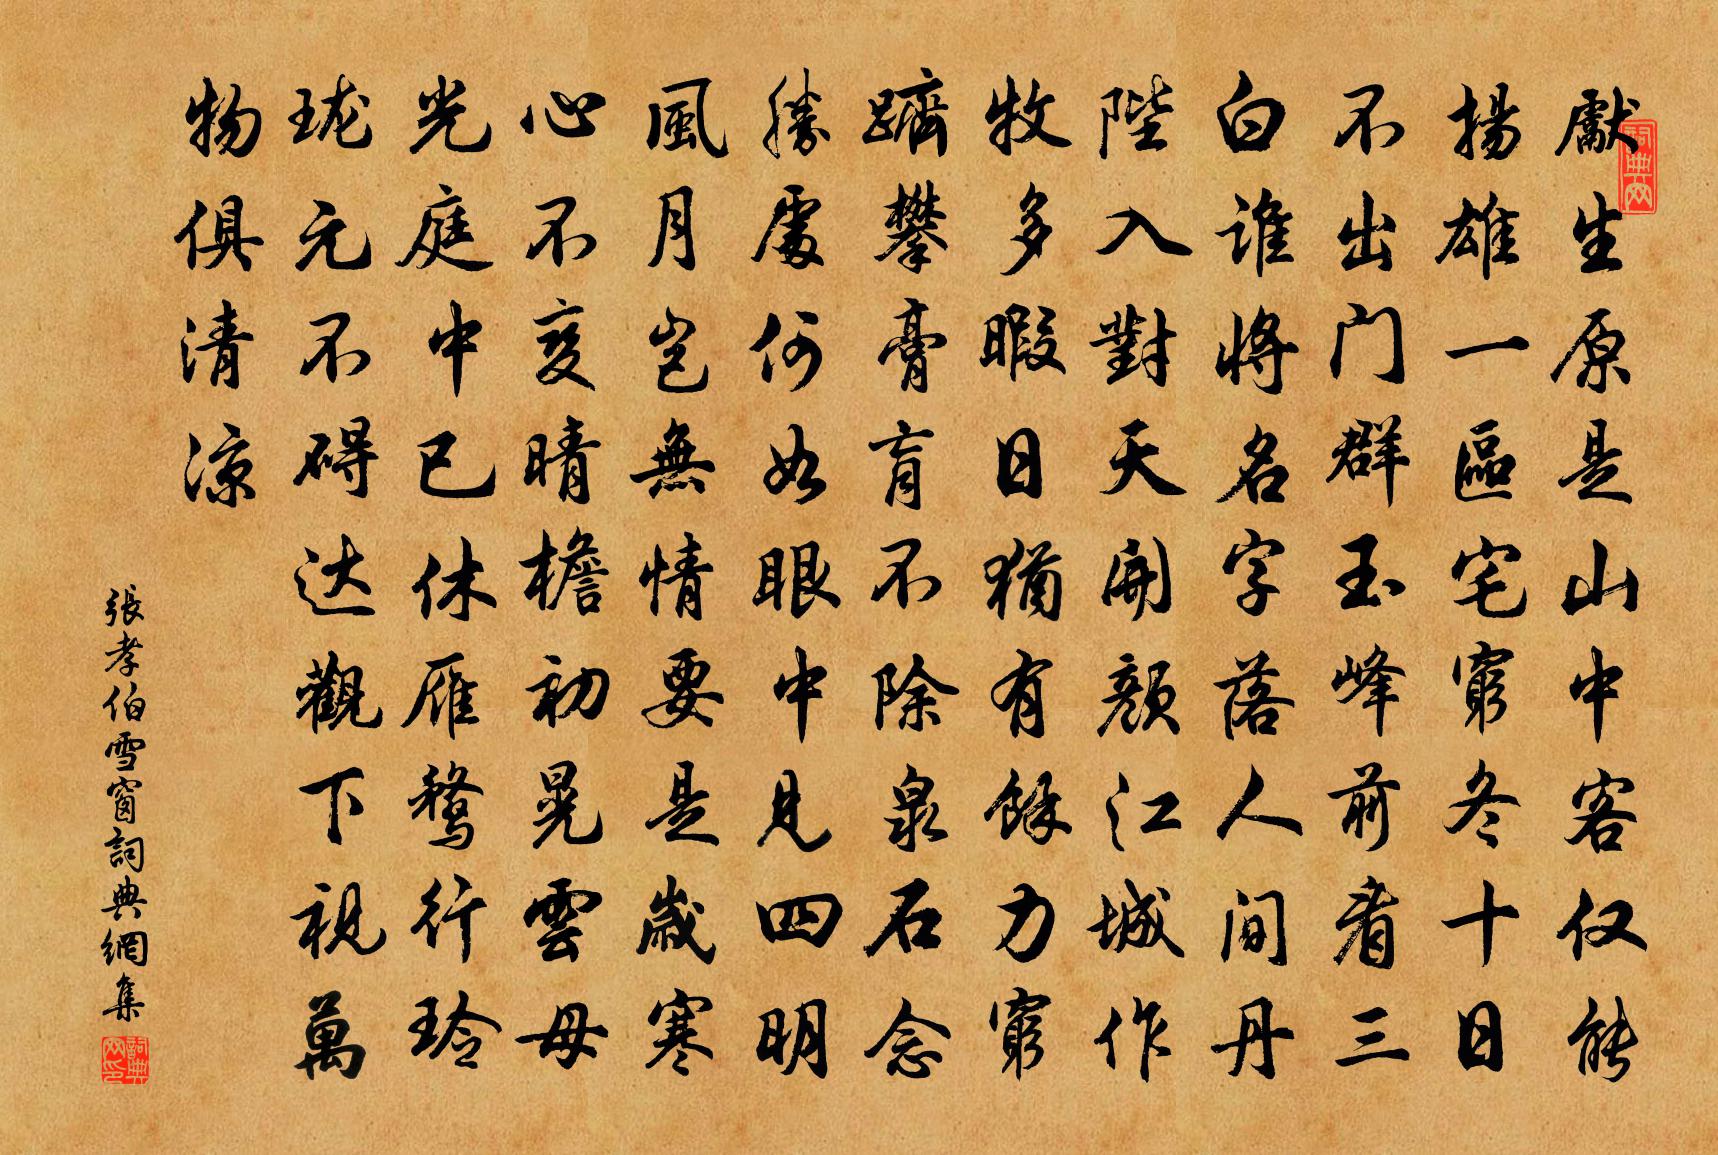 獻生原是山中客仅能
揚雄一區宅窮冬十日
不出门群玉峰前看三
白谁将名字落人间丹
陛入對天開颜江城作
牧多暇日猶有餘力窮
躋攀膏肓不除泉石念
勝處何如眼中見四明
風月岂無情要是歲寒
心不变晴檐初晃雲母
光庭中已休雁鹜行玲
珑元不碍达觀下視萬
物俱清凉
張孝伯雪窗詞典網集
詞典网
詞典网印